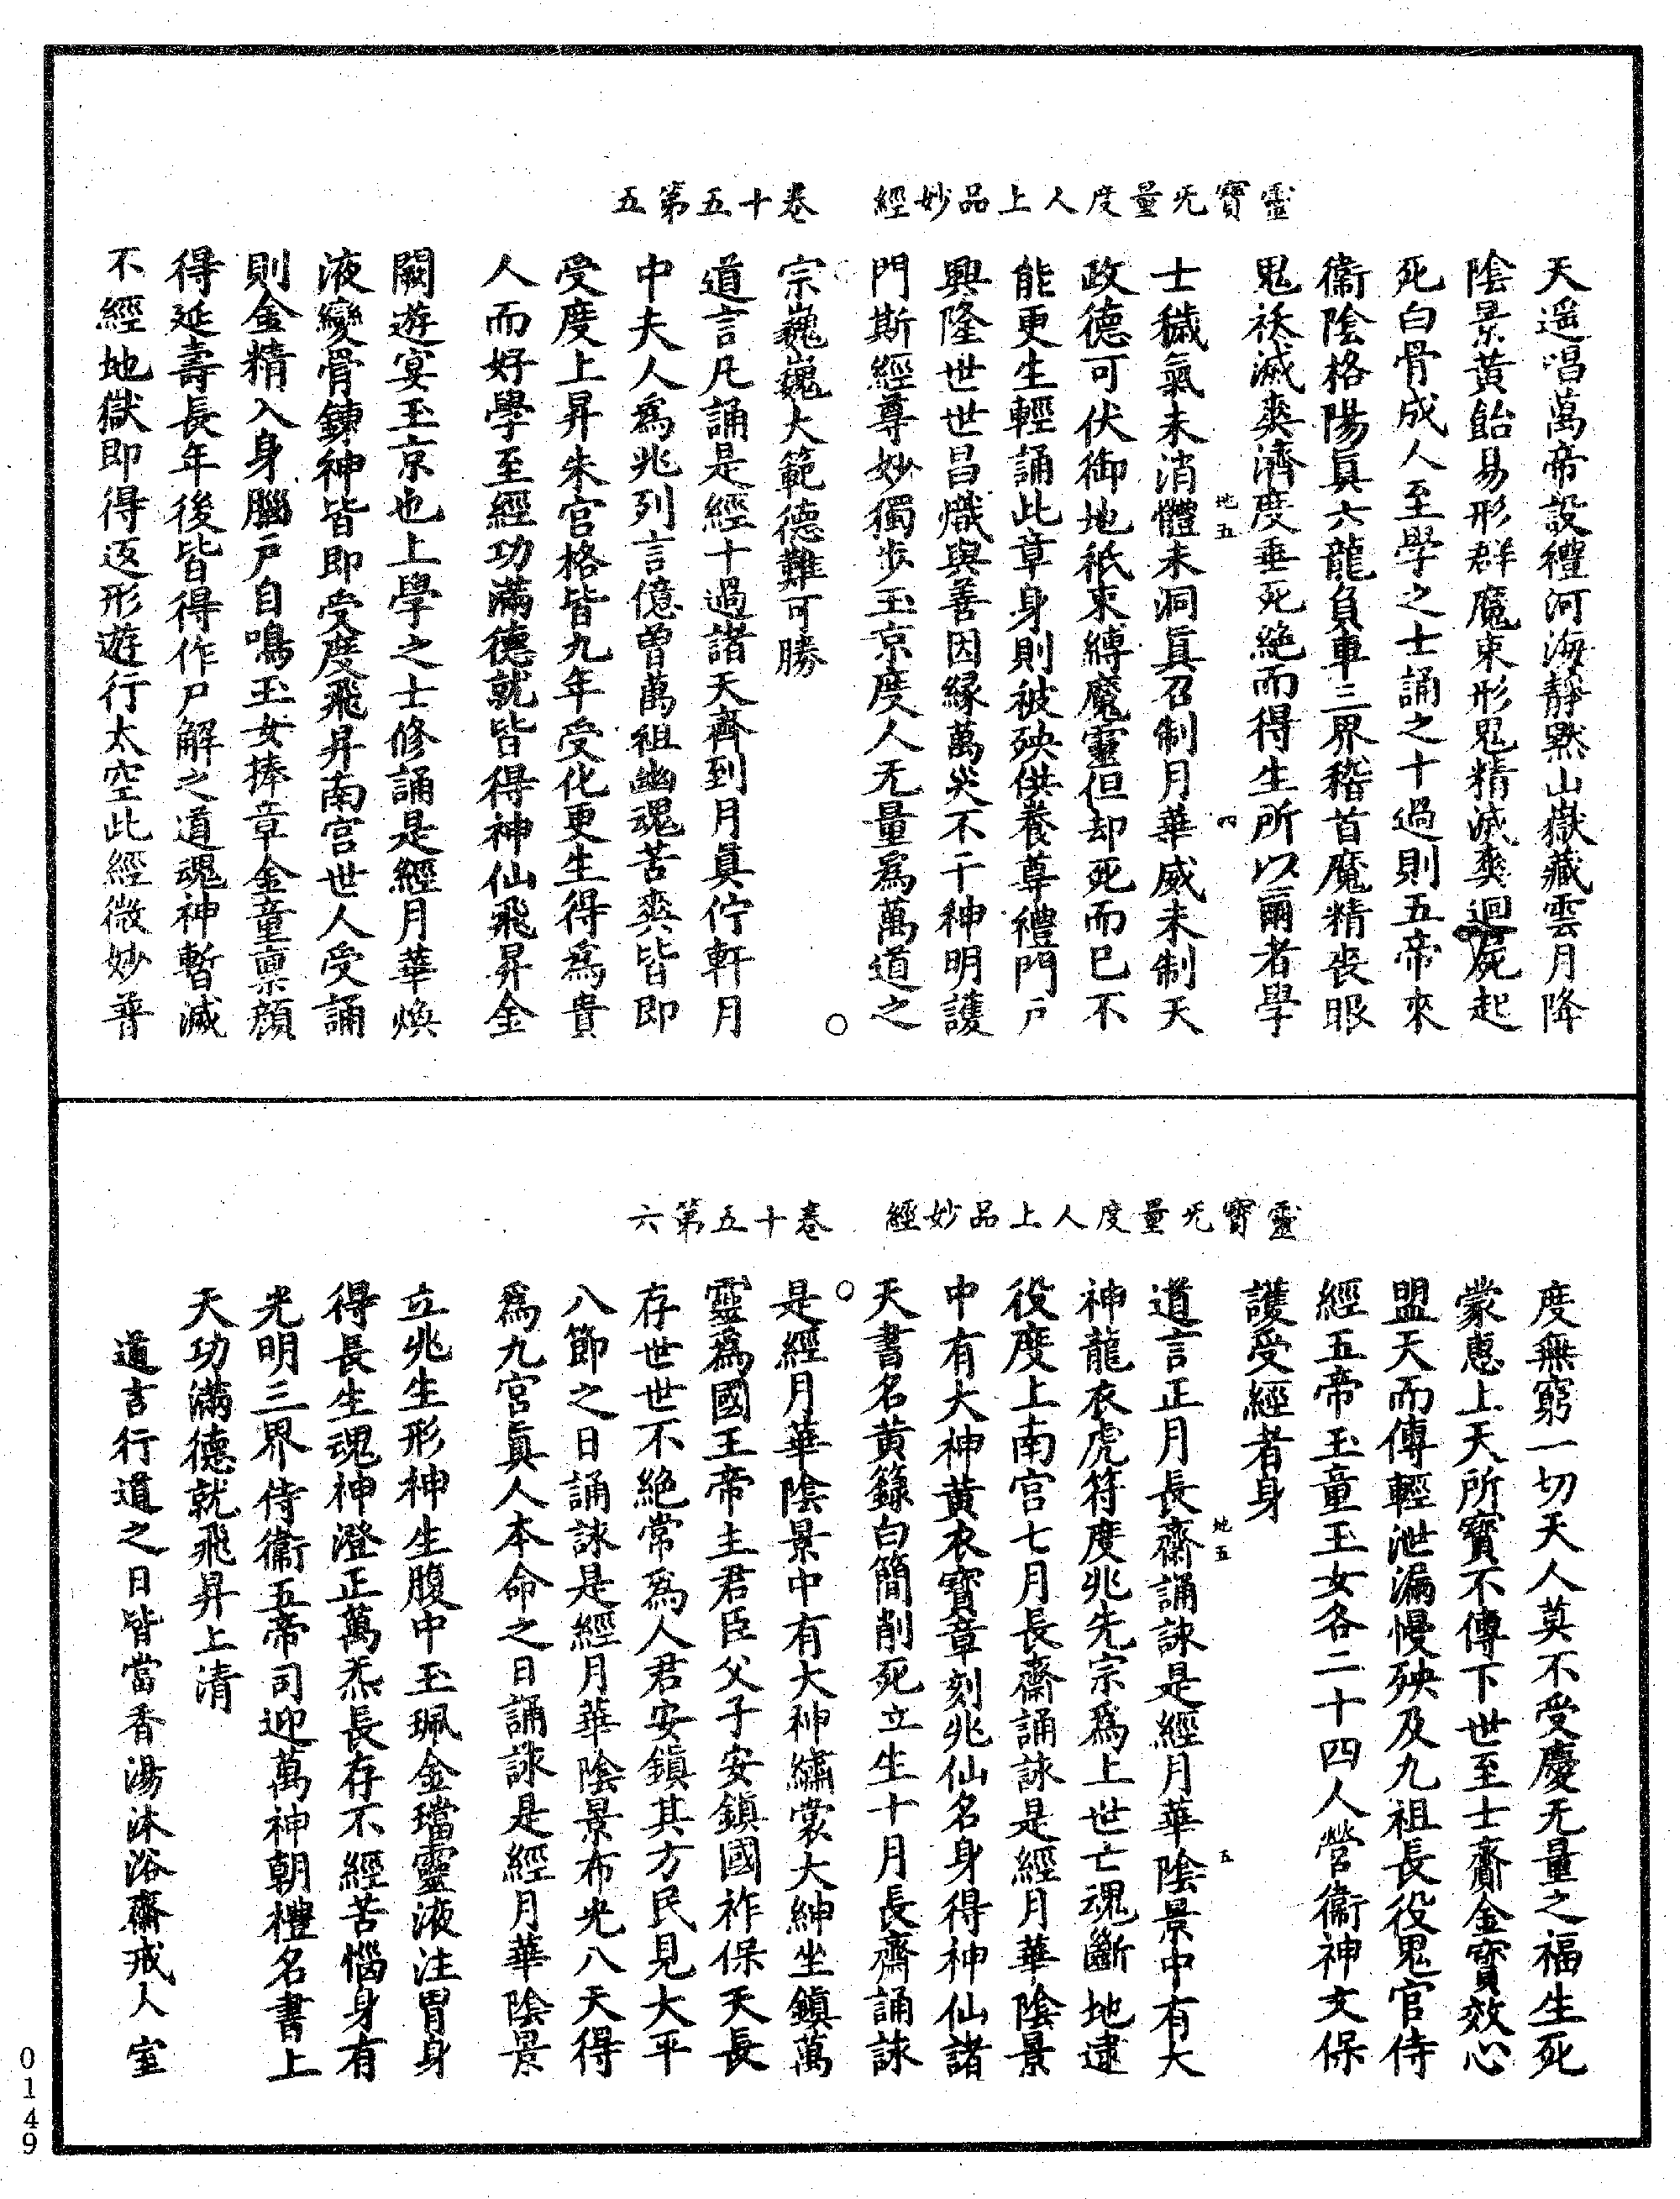 靈寶无量度人上品妙經　卷十五第五
天遥唱萬帝設禮河海靜黙山嶽藏雲月降
陰景黃飴易形群魔束形鬼精滅爽迴屍起
死白骨成人至學之士誦之十過則五帝來
衞陰格陽眞六龍負車三界稽首魔精喪眼
鬼祅滅爽濟度垂死絶而得生所以爾者學
地五　四
士穢氣未消體未洞眞召制月華威未制天
政德可伏御地祇束縛魔靈但却死而已不
能更生輕誦此章身則被殃供養尊禮門户
興隆世世昌熾與善因緣萬災不干神明護
門斯經尊妙獨步玉京度人无量爲萬道之
宗巍巍大範德難可勝
道言凡誦是經十過諸天齊到月眞佇軒月
中夫人爲兆列言億曾萬祖幽魂苦爽皆即
受度上昇朱宮格皆九年受化更生得爲貴
人而好學至經功滿德就皆得神仙飛昇金
闕遊宴玉京也上學之士修誦是經月華煥
液變骨鍊神皆即受度飛昇南宮世人受誦
則金精入身腦户自鳴玉女捧章金童禀顔
得延壽長年後皆得作尸解之道魂神暫滅
不經地獄即得返形遊行太空此經微妙普
靈寶无量度人上品妙經　卷十五第六
度無窮一切天人莫不受慶无量之福生死
蒙惠上天所寶不傳下世至士齎金寶效心
盟天而傳輕泄漏慢殃及九祖長役鬼官侍
經五帝玉童玉女各二十四人營衞神文保
護受經者身
地五　五
道言正月長齋誦詠是經月華陰景中有大
神龍衣虎符度兆先宗爲上世亡魂斷地逮
役度上南宮七月長齋誦詠是經月華陰景
中有大神黃衣寶章刻兆仙名身得神仙諸
天書名黃籙白簡削死立生十月長齋誦詠
是經月華陰景中有大神繡裳大紳坐鎮萬
靈爲國王帝主君臣父子安鎮國祚保天長
存世世不絶常爲人君安鎮其方民見大平
八節之日誦詠是經月華陰景布光八天得
爲九宮眞人本命之日誦詠是經月華陰景
立兆生形神生腹中玉珮金璫靈液注胃身
得長生魂神澄正萬炁長存不經苦惱身有
光明三界侍衞五帝司迎萬神朝禮名書上
天功滿德就飛昇上清
道言行道之日皆當香湯沐浴齋戒入室
0149